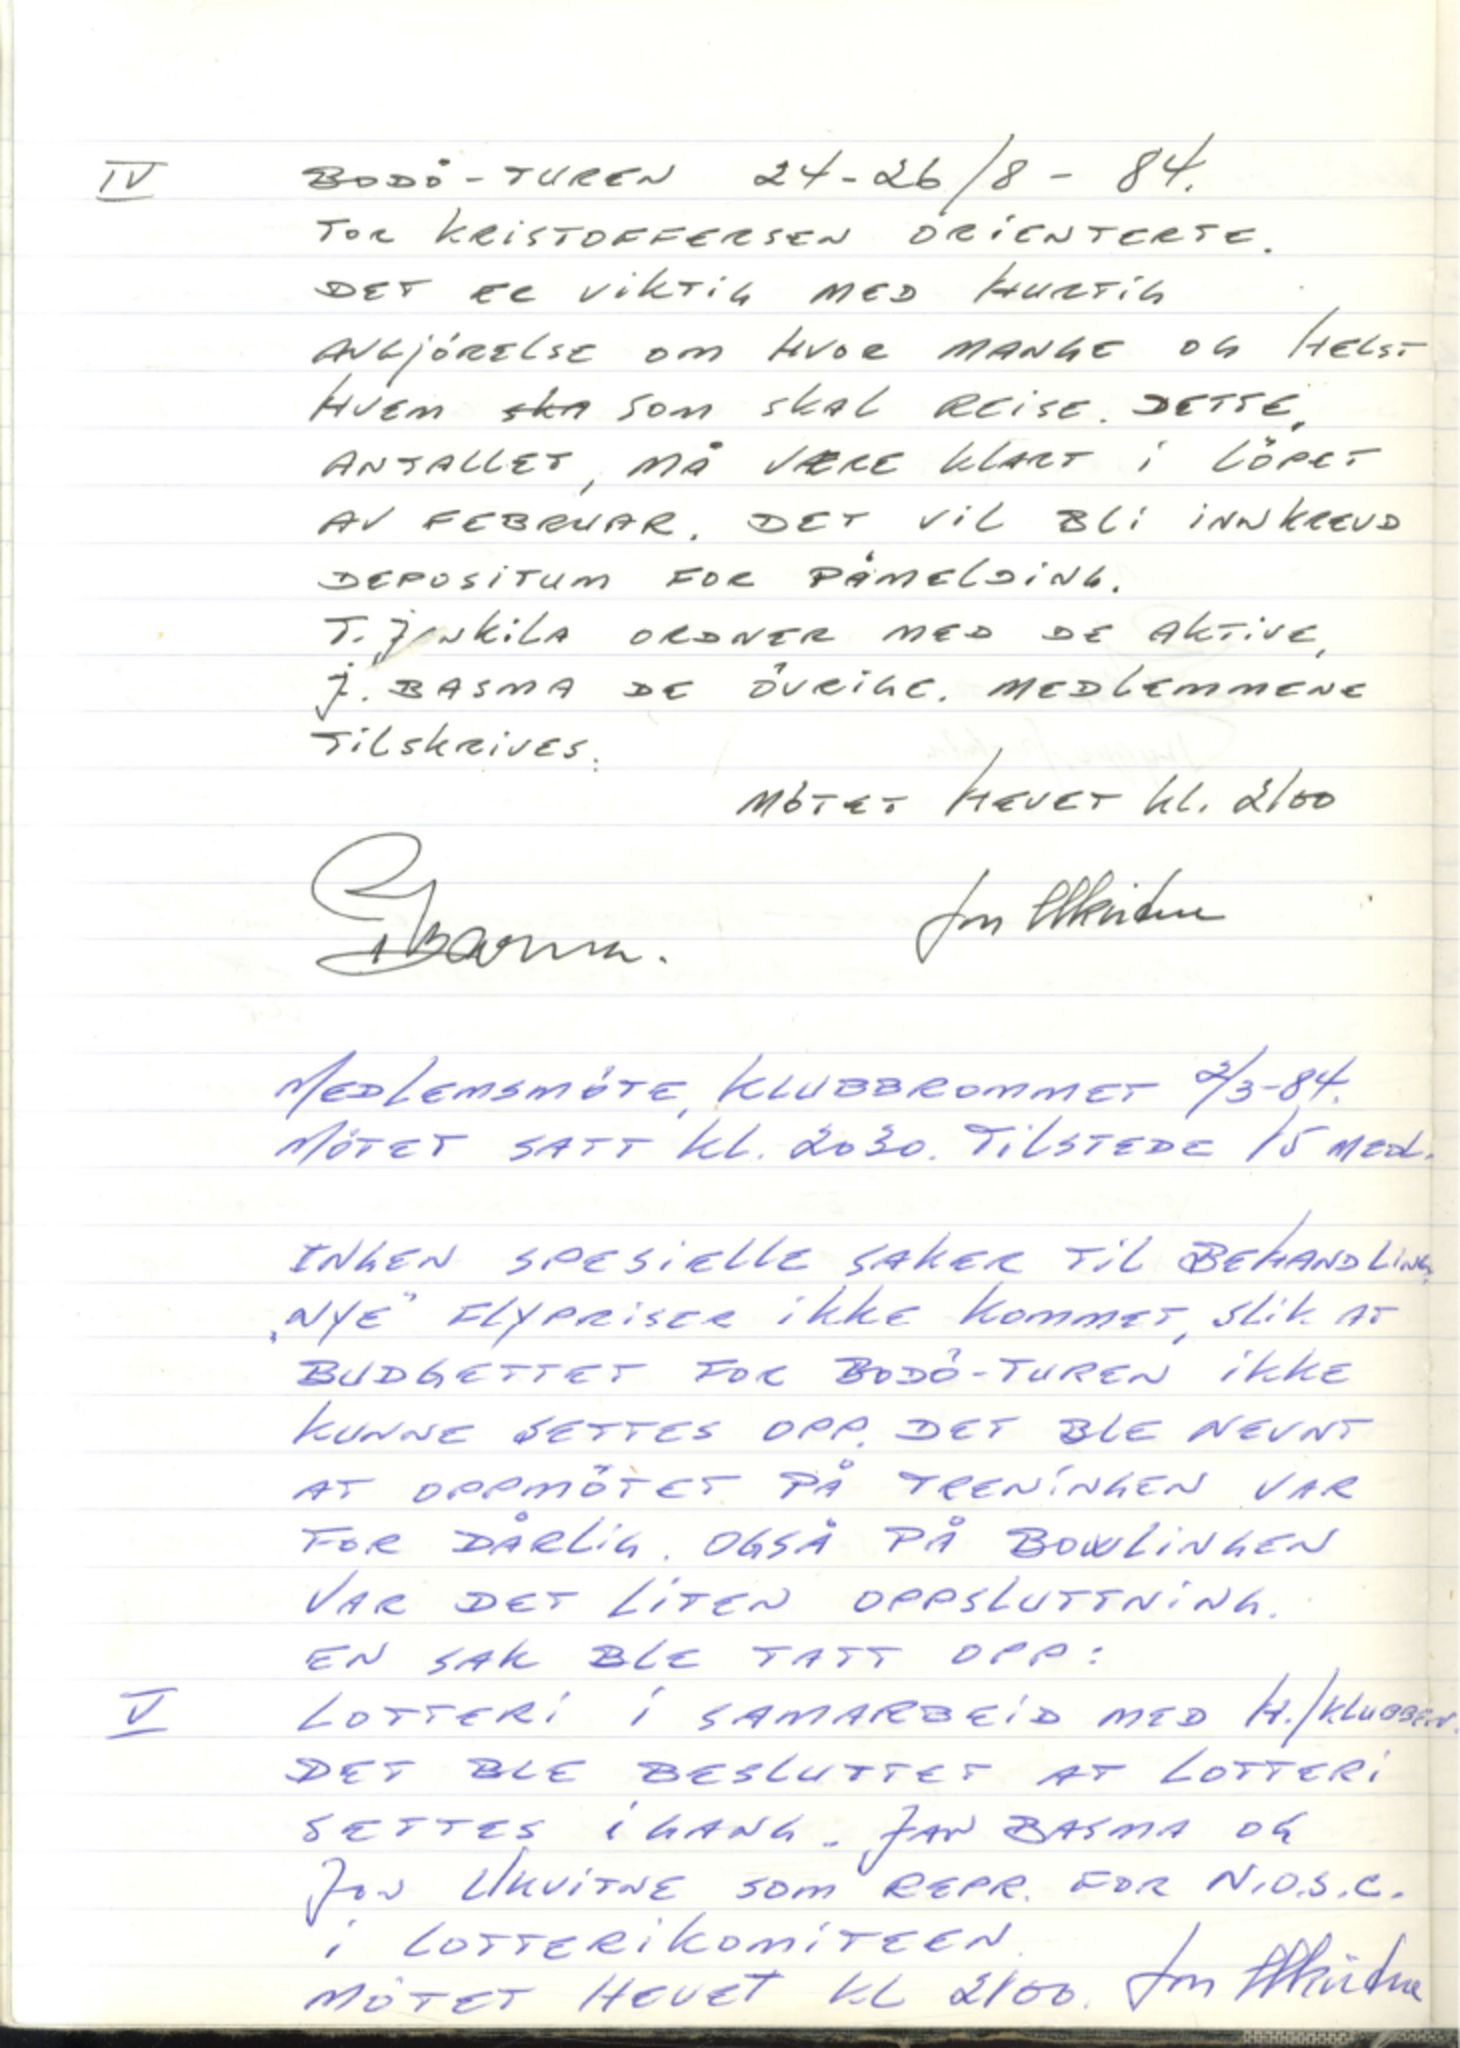 IV BODÖ-TUREN 24-26/8 - 84.
TOR KRISTOFFERSEN ORIENTERTE.
DET ER VIKTIG MED HURTIG
AVGJÖRELSE OM HVOR MANGE OG HELST
HVEM ska SOM SKAL REISE. DETTE,
ANTALLET, MÅ VÆRE KLART I LÖPET
AV FEBRUAR. DET VIL BLI INNKREVD
DEPOSITUM FOR PÅMELDING.
T. ORDNER MED DE AKTIVE,
J. BASMA DE ÖVRIGE. MEDLEMMENE
TILSKRIVES.
MÖTET HEVET KL. 2100
Basma. Jon Ulkvitne
MEDLEMSMÖTE, KLUBBROMMET 2/3-84.
MÖTET SATT KL. 2030. TILSTEDE 15 MEDL.
INGEN SPESIELLE SAKER TIL BEHANDLING.
„NYE" FLYPRISER IKKE KOMMET, SLIK AT
BUDGETTET FOR BODÖ-TUREN IKKE
KUNNE SETTES OPP. DET BLE NEVNT
AT OPPMÖTET PÅ TRENINGEN VAR
FOR DÅRLIG. OGSÅ PÅ BOWLINGEN
VAR DET LITEN OPPSLUTTNING.
EN SAK BLE TATT OPP:
V LOTTERI I SAMARBEID MED H./KLUBBEN.
DET BLE BESLUTTET AT LOTTERI
SETTES IGANG. JAN BASMA OG
JON ULKVITNE SOM REPR. FOR N.O.S.C.
I LOTTERIKOMITEEN.
MÖTET HEVET KL 2100. Jon Ulkvitne